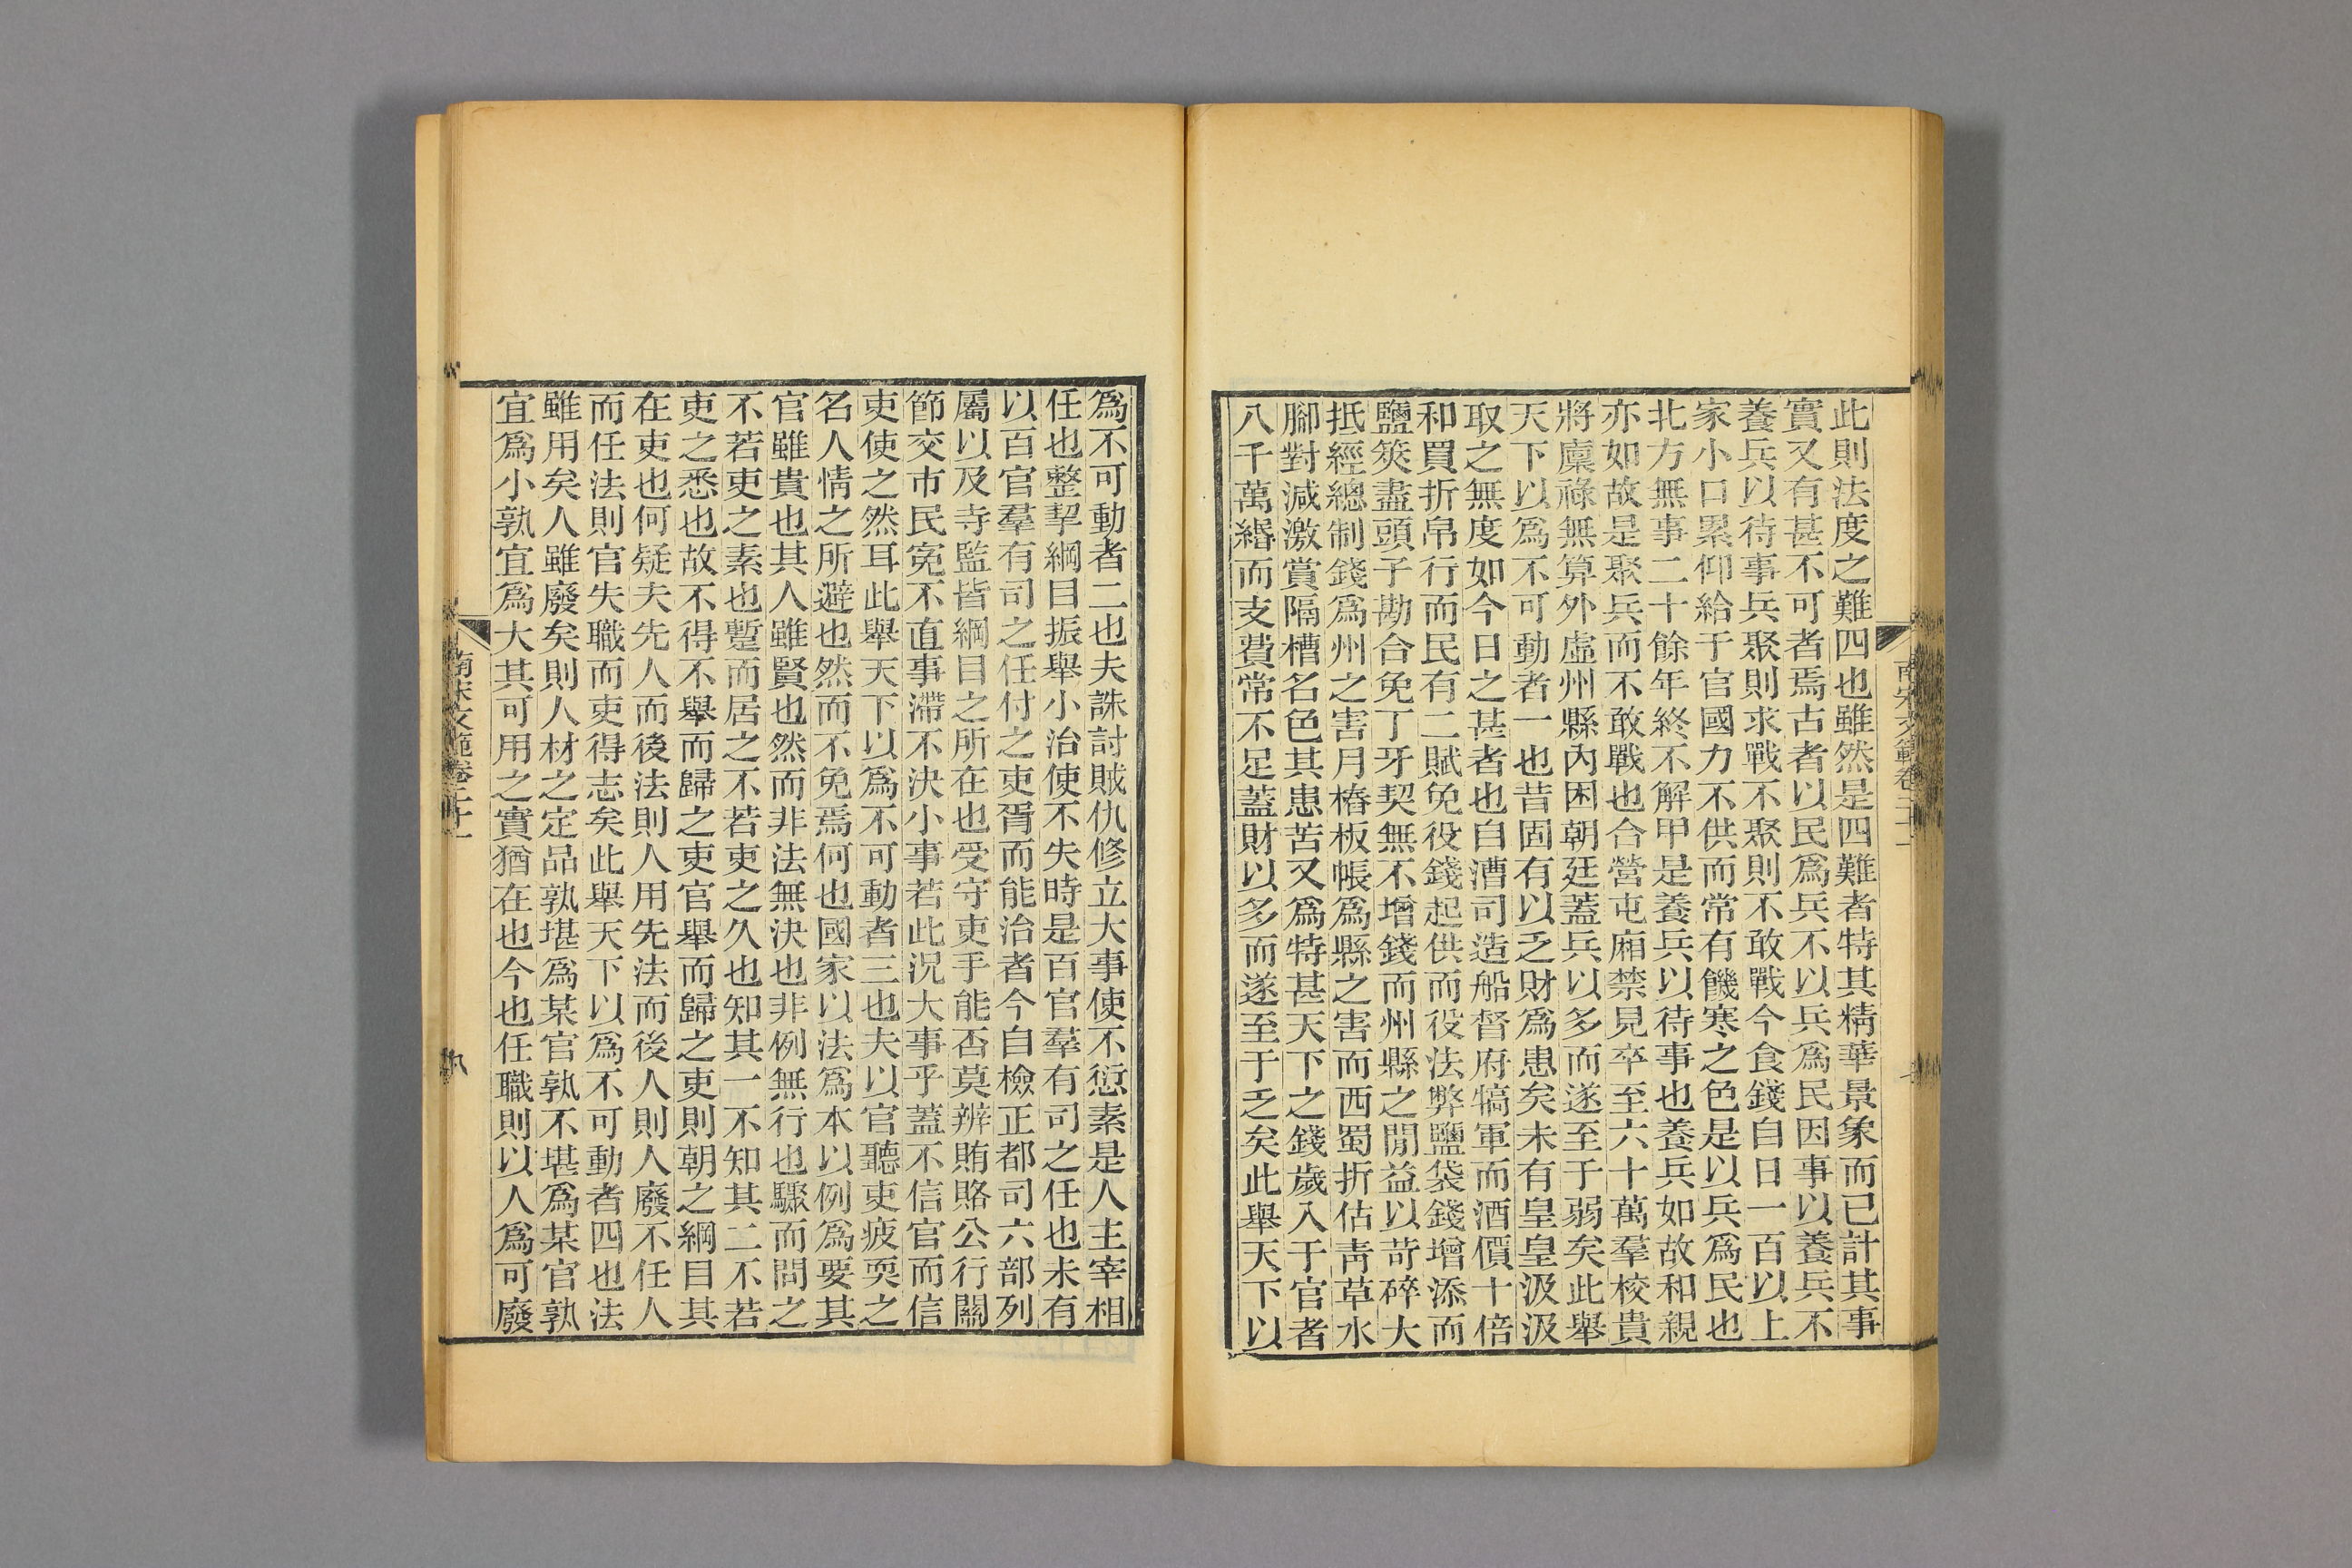 此則法度之難四也雖然是四難者特其精華景象而已計其事
實又有甚不可者焉古者以民爲兵不以兵爲民因事以養兵不
養兵以待事兵聚則求戰不聚則不敢戰今食錢自日一百以上
家小口累仰給于官國力不供而常有饑寒之色是以兵爲民也
北方無事二十餘年終不解甲是養兵以待事也養兵如故和親
亦如故是聚兵而不敢戰也合營屯廂禁見卒至六十萬羣校貴
將廩祿無算外虛州縣內困朝廷蓋兵以多而遂至于弱矣此舉
天下以爲不可動者一也昔固有以乏財爲患矣未有皇皇汲汲
取之無度如今日之甚者也自漕司造船督府犒軍而酒價十倍
和買折帛行而民有二賦免役錢起供而役法弊鹽袋錢增添而
鹽筴盡頭子勘合免丁牙契無不增錢而州縣之閒益以苛碎大
抵經總制錢爲州之害月樁板帳爲縣之害而西蜀折估靑草水
腳對減激賞隔槽名色其患苦又爲特甚天下之錢歲入于官者
八千萬緡而支費常不足蓋財以多而遂至于乏矣此舉天下以
南宋文範卷二十一
爲不可動者二也夫誅討賊仇修立大事使不愆素是人主宰相
任也整挈綱目振舉小治使不失時是百官羣有司之任也未有
以百官羣有司之任付之吏胥而能治者今自檢正都司六部列
屬以及寺監皆綱目之所在也受守吏手能否莫辨賄賂公行關
節交市民冤不直事滯不決小事若此況大事乎蓋不信官而信
吏使之然耳此舉天下以爲不可動者三也夫以官聽吏疲耎之
名人情之所避也然而不免焉何也國家以法爲本以例爲要其
官雖貴也其人雖賢也然而非法無決也非例無行也驟而問之
不若吏之素也蹔而居之不若吏之久也知其一不知其二不若
吏之悉也故不得不舉而歸之吏官舉而歸之吏則朝之綱目其
在吏也何疑夫先人而後法則人用先法而後人則人廢不任人
而任法則官失職而吏得志矣此舉天下以爲不可動者四也法
雖用矣人雖廢矣則人材之定品孰堪爲某官孰不堪爲某官孰
宜爲小孰宜爲大其可用之實猶在也今也任職則以人爲可廢
南宋文範卷二十一